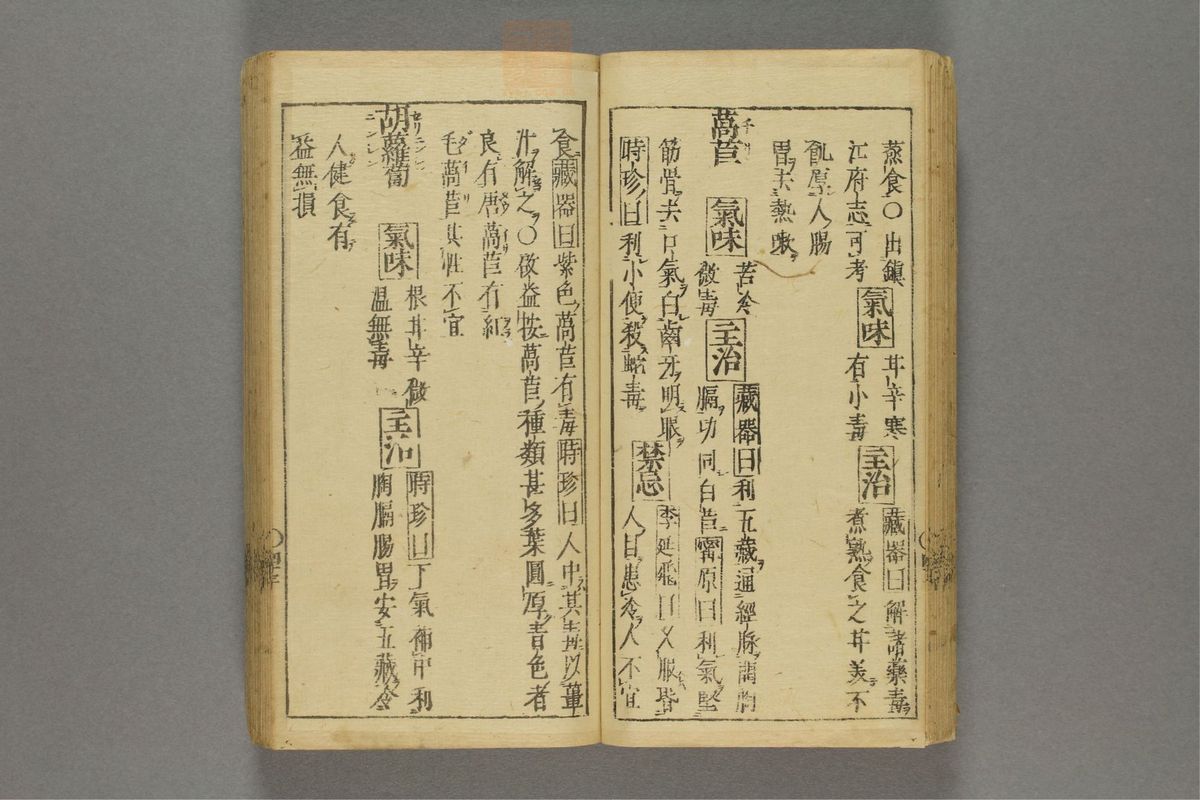 蒸食○出鎮
江府志可考
氣味
甘辛寒
有小毒
主治
藏器曰解諸藥毒
煮熟食之甘美不
飢厚人腸
胃去熱嗽
萵苣
氣味
苦冷
微毒
主治
藏器曰利五藏通經脉開胸
膈功同白苣寗原曰利氣堅
筋骨去口氣白齒牙明眼
時珍曰利小便殺蟲毒
禁忌
李延飛曰久服昏
人目患冷人不宜
食藏器曰紫色萵苣有毒時珍曰人中其毒以薑
汁解之○啟益按萵苣種類甚多葉圓厚青色者
良有唐萵苣有紅
毛萵苣其性不宜
胡蘿蔔
氣味
根甘辛微
温無毒
主治
時珍曰下氣補中利
胸膈腸胃安五藏令
人健食有
益無損